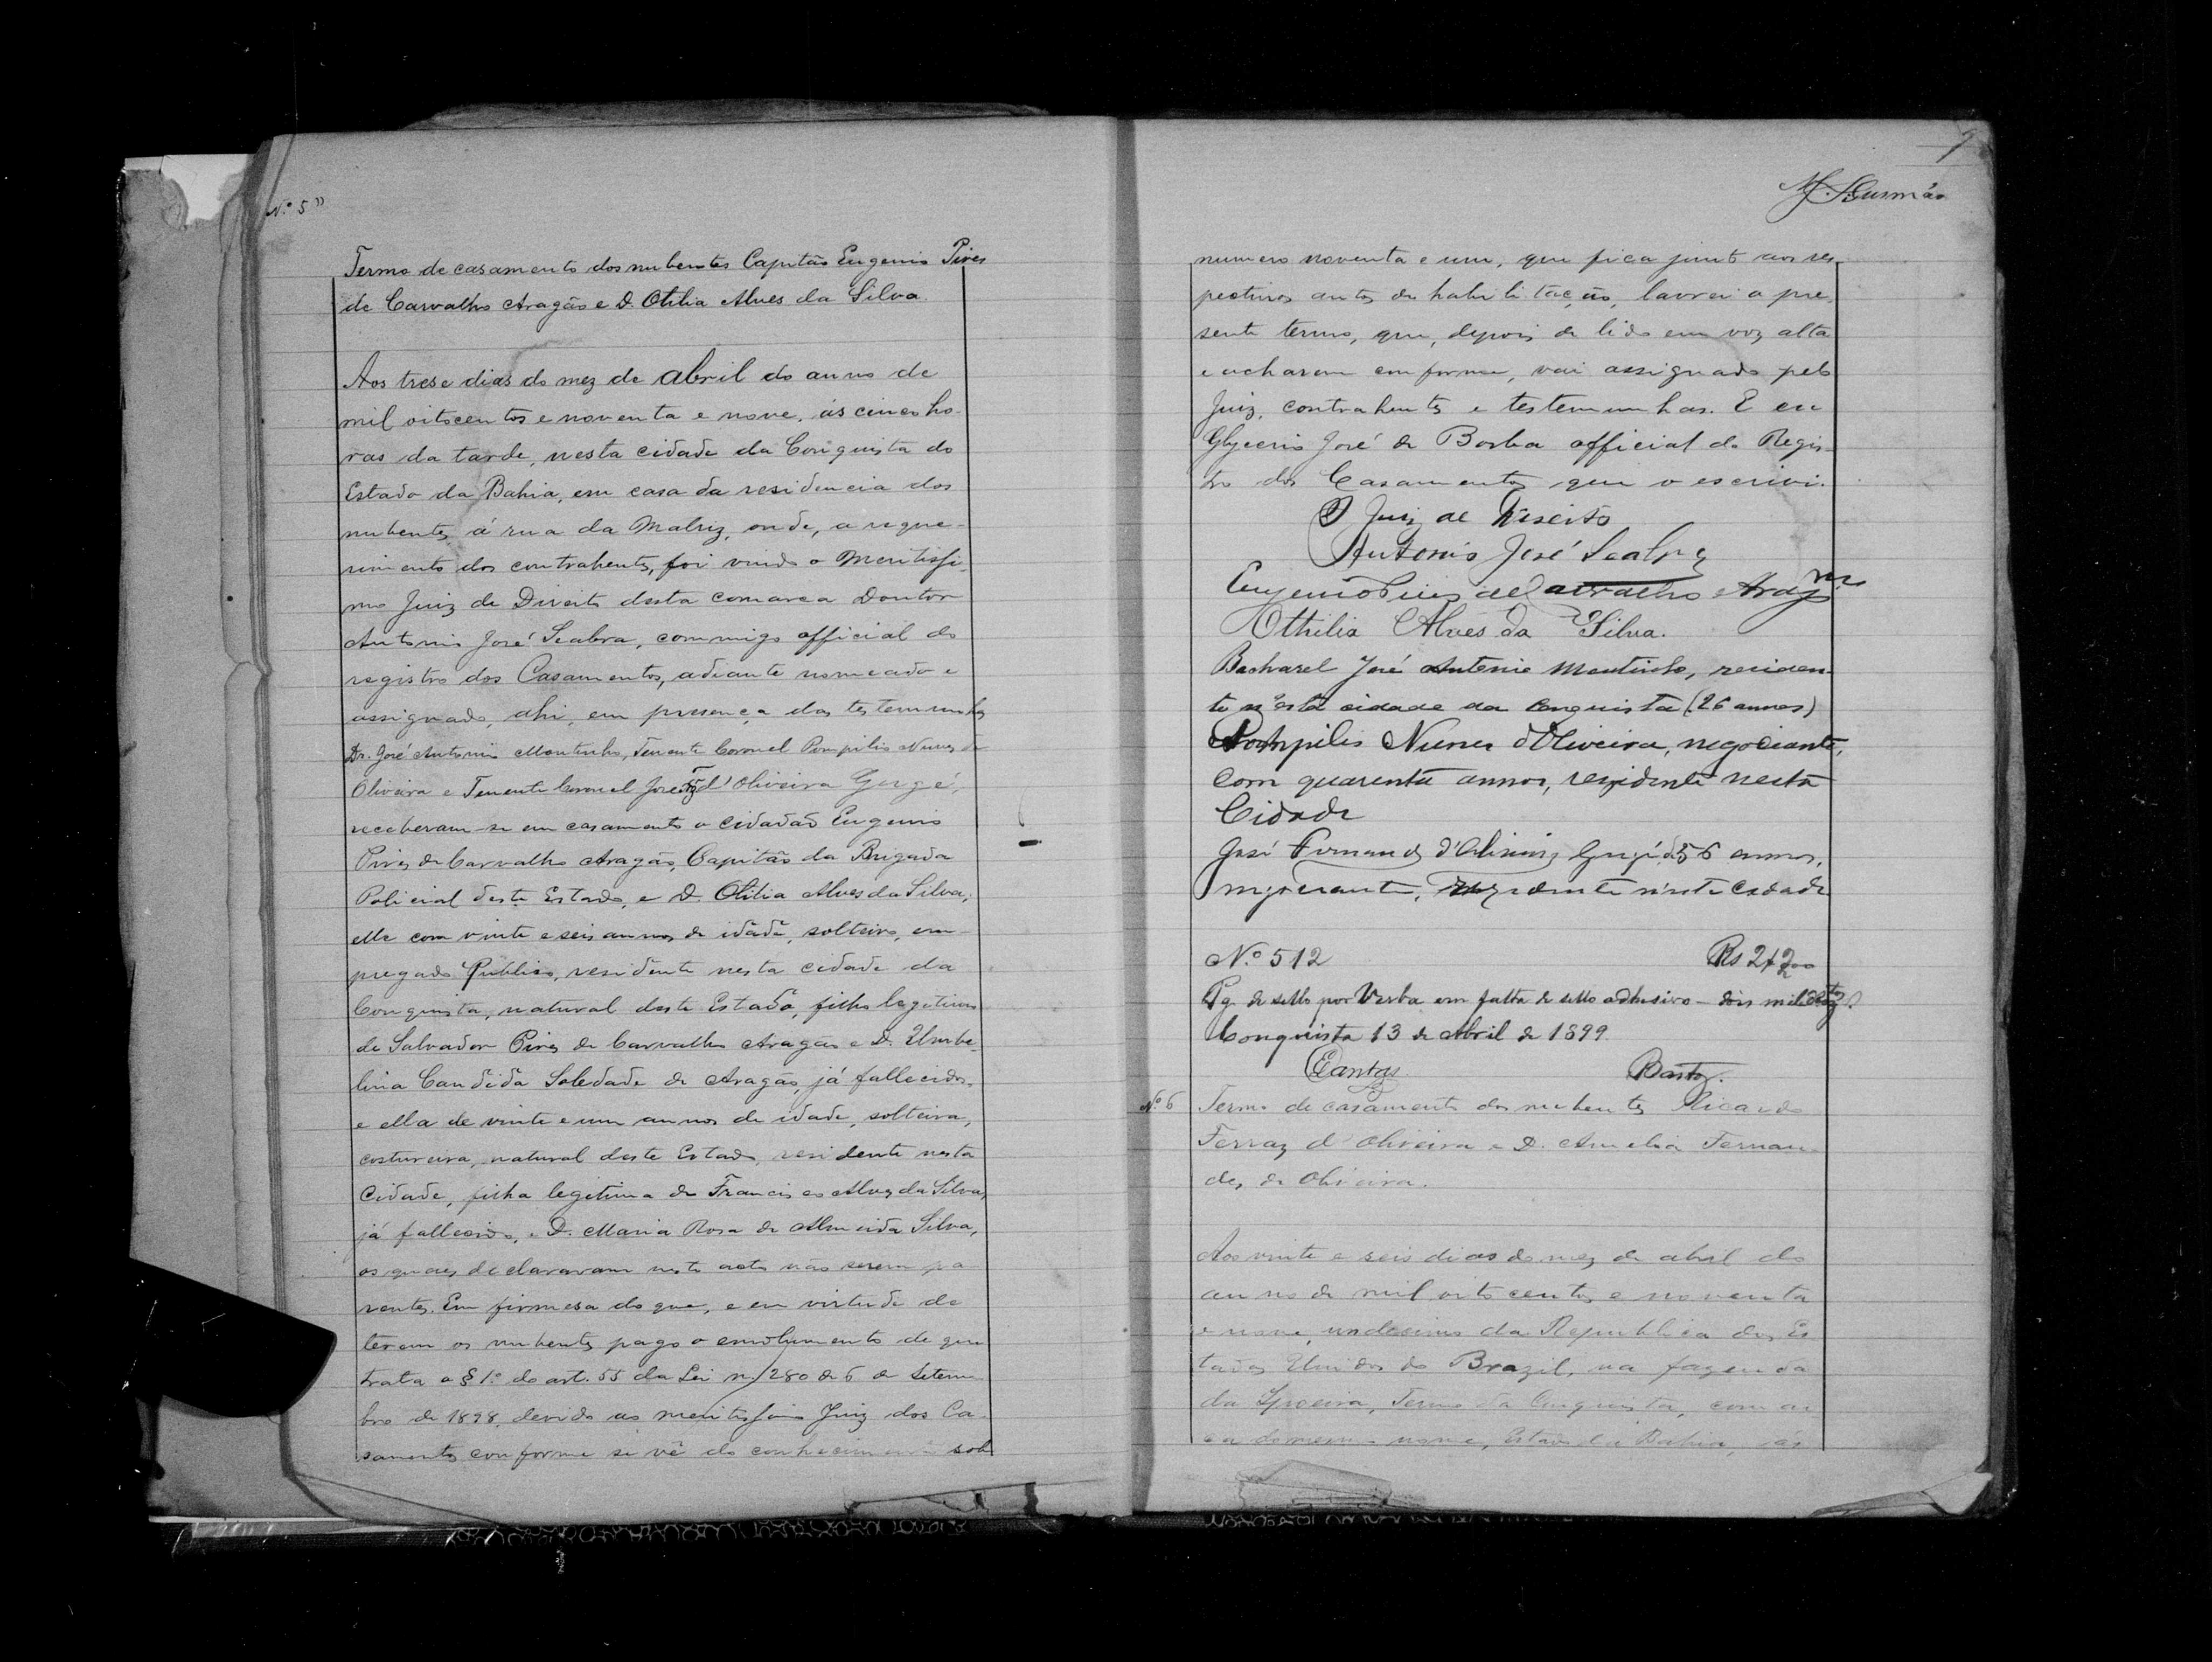 N.º 5"
Termo de casamento dos nubentes Capitão Eugenio Pires
de Carvalho Aragão e D. Otilia Alves da Silva.
Aos trese dias do mez de abril do anno de
mil oitocentos e noventa e nove, ás cinco ho-
ras da tarde, nesta cidade da Conquista do
Estado da Bahia, em casa da residencia dos
nubentes, á rua da Matriz, onde, a reque-
rimento dos contrahentes, foi vindo o Meritissi-
mo Juiz de Direito desta comarca Doutor
Antonio José Seabra, commigo official do
registro dos Casamentos, adiante nomeado e
assignado, ahi, em presença das testemunhas
Dr. José Antonio Moutinho, Tenente Coronel Pompilio Nunes de
Oliveira e Tenente Coronel José d'Oliveira Gugé,
receberam-se em casamento o cidadão Eugenio
Pires de Carvalho Aragão, Capitão da Brigada
Policial deste Estado, e D. Otilia Alves da Silva;
elle com vinte e seis annos de idade, solteiro, em-
pregado Publico, residente nesta cidade da
Conquista, natural deste Estado, filho legitimo
de Salvador Pires de Carvalho Aragão e D. Umbe-
lina Candida Soledade de Aragão, já fallecidos,
e ella de vinte e um annos de idade, solteira,
costureira, natural deste Estado, residente nesta
Cidade, filha legitima de Francisco Alves da Silva,
já fallecido, e D. Maria Rosa de Almeida Silva,
os quaes declararam neste acto não serem pa-
rentes. Em firmesa do que, e em virtude de
terem os nubentes pago o emolumento de que
trata o § 1.º do art. 55 da Lei n. 280 de 6 de Setem-
bro de 1898, devido ao meritissimo Juiz dos Ca-
samentos conforme se vê do conhecimento sob
numero noventa e um, que fica junto aos res-
pectivos autos de habilitação, lavrei o pre-
sente termo, que, depois de lido em voz alta
e acharem conforme, vai assignado pelo
Juiz, contrahentes e testemunhas. E eu
Glycerio José de Borba official do Regis-
tro dos Casamentos que o escrivi.
O Juiz de Direito
Antonio José Seabra
Eugenio Pires de Carvalho Aragão
Othilia Alves da Silva.
Bacharel José Antonio Moutinho, residen-
te n'esta cidade da Conquista (26 annos)
Pompilio Nunes d'Oliveira, negociante,
com quarenta annos, residente nesta
Cidade
José Fernandes d'Oliveira Gugé, 56 annos,
negociante, residente n'esta Cidade
N.º 512 Rs 2$200
Pg. de sello por Verba em falta de sello adhesivo – dois mil
Conquista 13 de Abril de 1899
Dantas Bastos.
N.º 6 Termo de casamento dos nubentes Ricardo
Ferraz d'Oliveira e D. Amelia Fernan-
des de Oliveira.
Aos vinte e seis dias do mez de abril do
anno de mil oitocentos e noventa
e nove, undecimo da Republica dos Es-
tados Unidos do Brazil, na fazenda
da Termo da Conquista, comar-
ca do mesmo nome, Estado da Bahia, ás